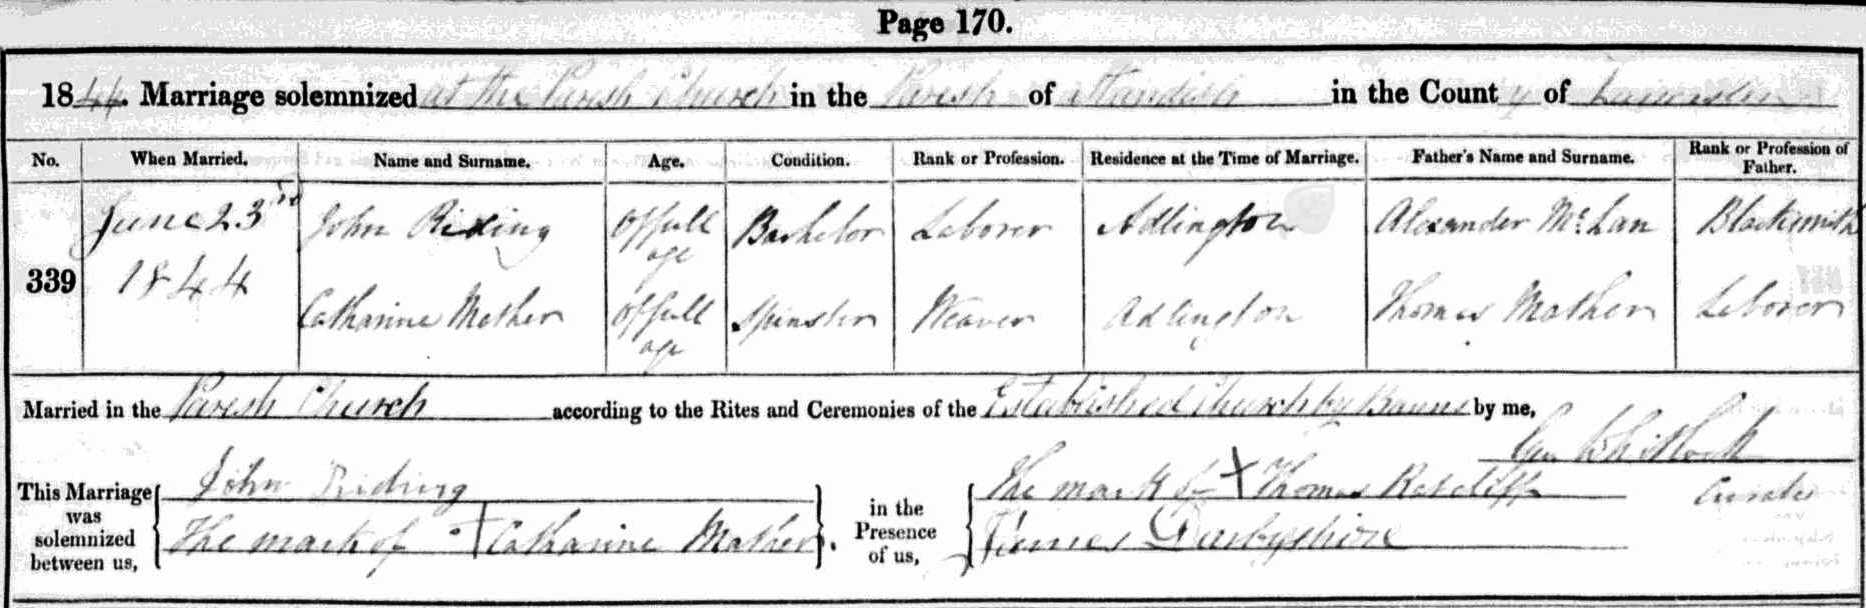 Page 170.
1844. Marriage solemnized at the Parish Church in the Parish of Standish in the County of Lancaster
No. When Married. Name and Surname. Age. Condition. Rank or Profession. Residence at the Time of Marriage. Father's Name and Surname. Rank or Profession of Father.
339 June 23rd 1844 John Riding Of full age Bachelor Laborer Adlington Alexander McLan Blacksmith
Catharine Mather Of full age Spinster Weaver Adlington Thomas Mather Laborer
Married in the Parish Church according to the Rites and Ceremonies of the Established Church by Banns by me,
Whitlock
This Marriage was solemnized between us, John Riding in the Presence of us, The mark of X Thomas Ratcliff Curate
The mark of + Catharine Mather. James Darbyshire